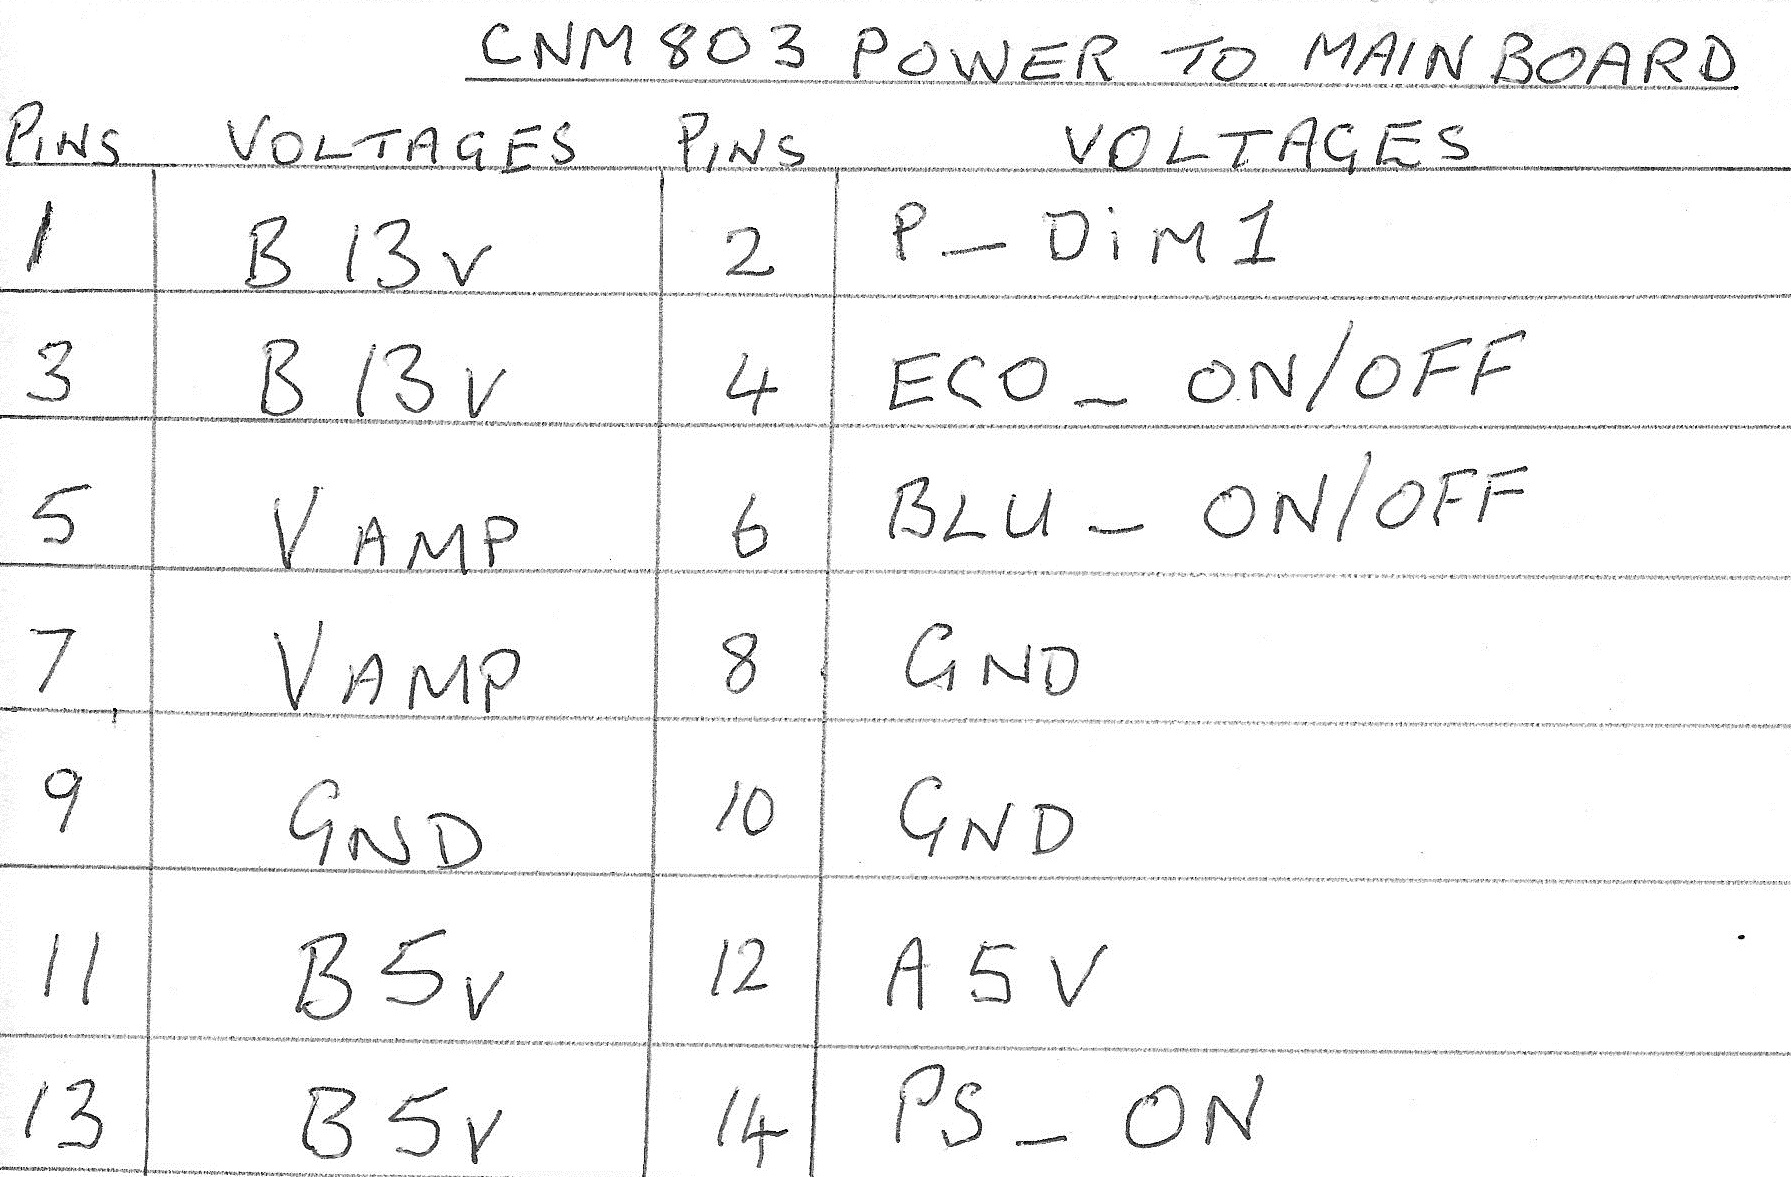 CNM803 POWER TO MAIN BOARD
PINS VOLTAGES PINS VOLTAGES
1 B 13v 2 P_DiM1
3 B 13v 4 ECO_ON/OFF
5 VAMP 6 BLU_ON/OFF
7 VAMP 8 GND
9 GND 10 GND
11 B5v 12 A5V
13 B5v 14 PS_ON